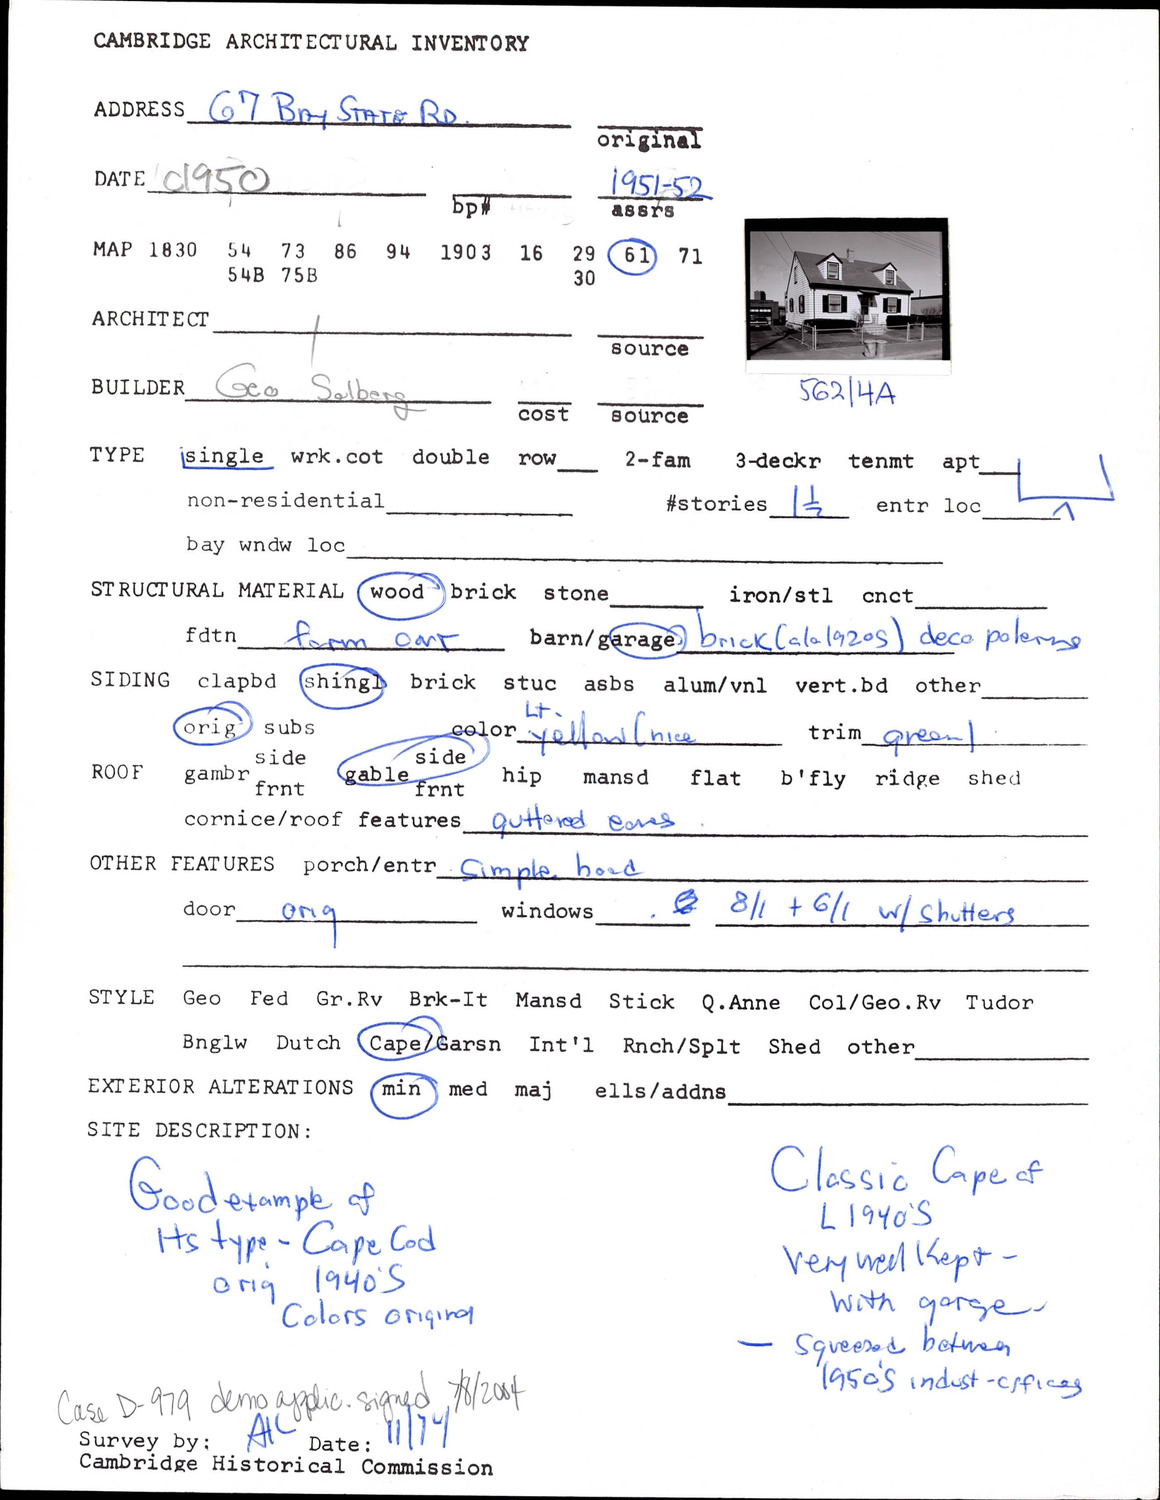 CAMBRIDGE ARCHITECTURAL INVENTORY
ADDRESS 67 BAY STATE RD.
original
DATE c1950 1951-52
bp# assrs
MAP 1830 54 73 86 94 1903 16 29 61 71
54B 75B 30
ARCHITECT
source
BUILDER Geo Solberg
cost source
562/4A
TYPE single wrk.cot double row 2-fam 3-deckr tenmt apt
non-residential #stories 1½ entr loc
bay wndw loc
STRUCTURAL MATERIAL wood brick stone iron/stl cnct
fdtn barn/garage brick (ala 1920s) deco
SIDING clapbd shingl brick stuc asbs alum/vnl vert.bd other
orig subs color Lt. yellow (nice trim green)
ROOF gambr side frnt gable side frnt hip mansd flat b'fly ridge shed
cornice/roof features guttered eaves
OTHER FEATURES porch/entr Simple hood
door orig windows 8/1 + 6/1 w/ shutters
STYLE Geo Fed Gr.Rv Brk-It Mansd Stick Q.Anne Col/Geo.Rv Tudor
Bnglw Dutch Cape/Garsn Int'l Rnch/Splt Shed other
EXTERIOR ALTERATIONS min med maj ells/addns
SITE DESCRIPTION:
Good example of
Its type - Cape Cod
orig 1940'S
Colors original
Classic Cape of
L 1940'S
Very well kept -
with garage
— Squeezed between
1950'S indust-offices
Case D-979 demo applic. signed 7/8/2004
Survey by: Date: 11/74
Cambridge Historical Commission